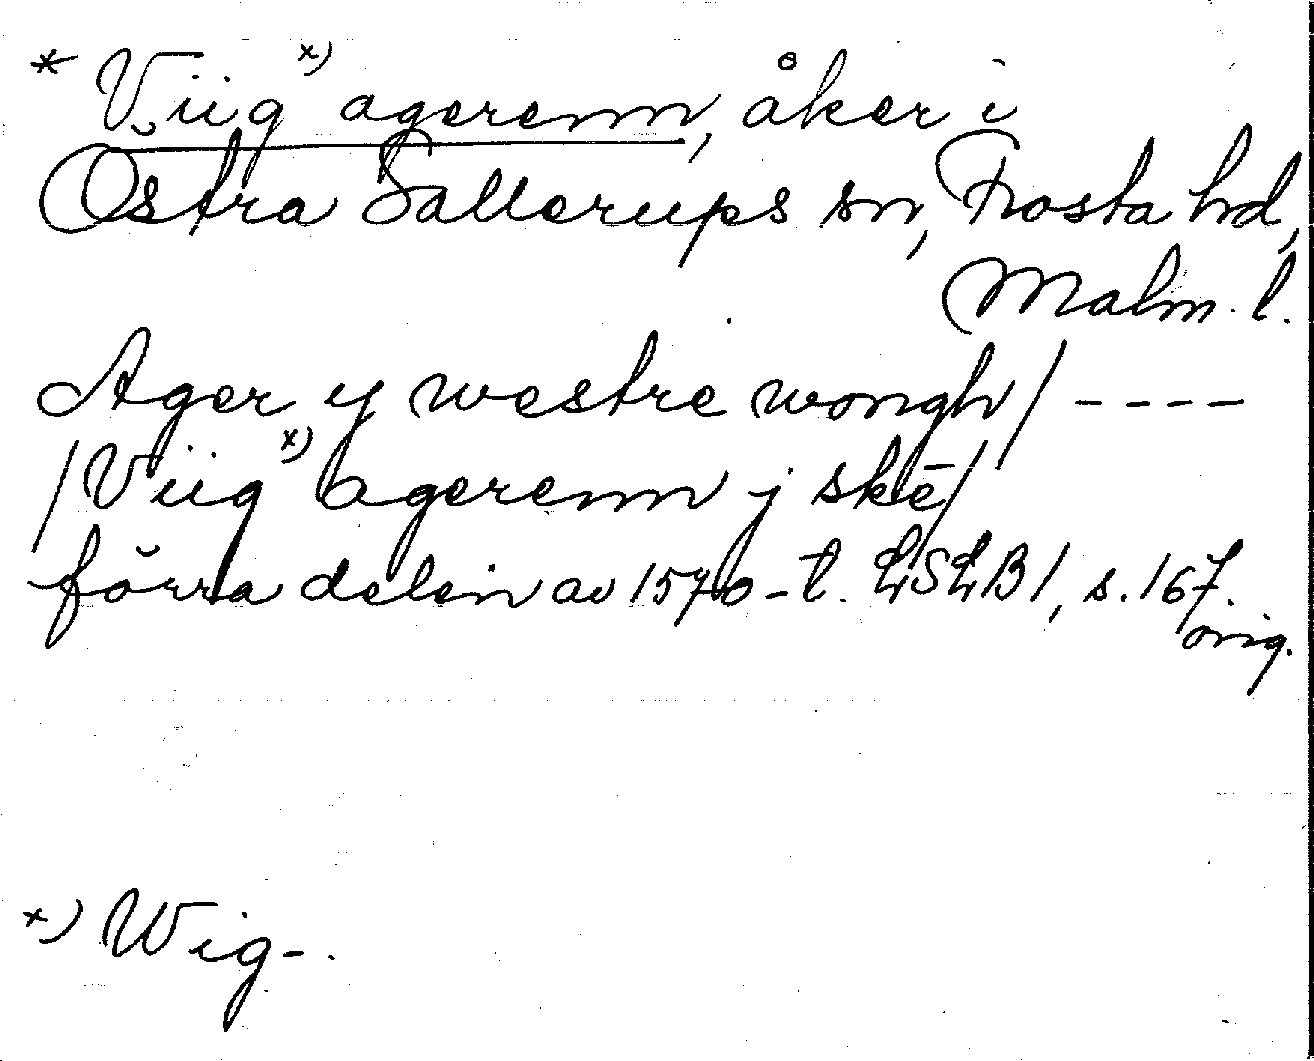 * Viig x) agerenn, åker i
Östra Sallerups sn, Frosta hd,
Malm. l.
Ager y westre wongh / ----
/ Viig x) agerenn j skē /
förra delen av 1570-t. LSLB 1, s. 167.
orig.
x) Wig-.